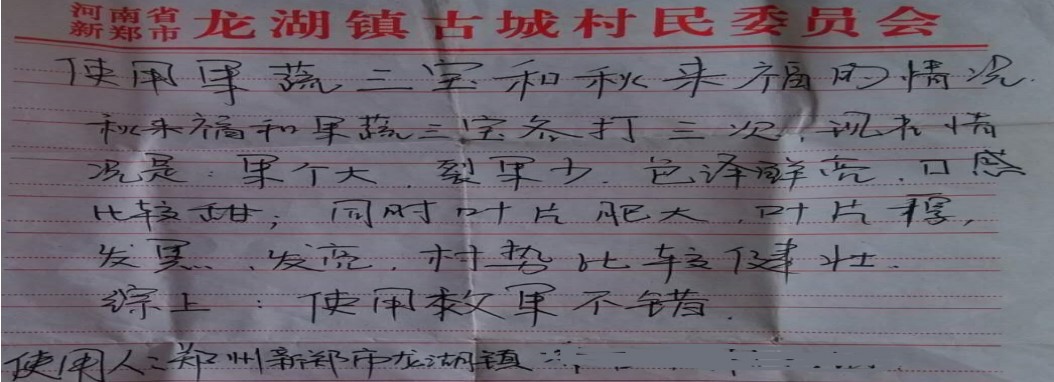 河南省新郑市龙湖镇古城村民委员会
使用果蔬三宝和秋来福的情况
秋来福和果蔬三宝各打三次,现在情
况是:果个大、裂果少、色泽鲜亮、口感
比较甜;同时叶片肥大、叶片厚,
发黑、发亮,村势比较健壮.
综上:使用教果不错.
使用人:郑州新郑市龙湖镇